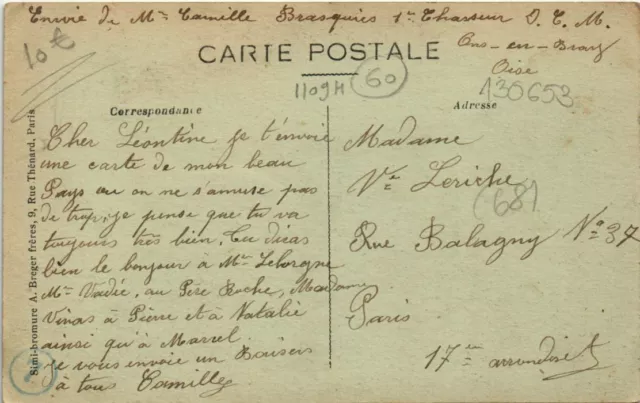 Envie de Mr Camille Brasquies 1r Chasseur D. C. M.
Ons-en-Bray
Oise
10 €
CARTE POSTALE
1109H
60
130653
Correspondance
Adresse
Cher Léontine je t'envoie
une carte de mon beau
Pays ou on ne s'amuse pas
de trop, je pense que tu va
toujours très bien. Tu diras
bien le bonjour à Mr Lelorgne
Mr Vadée, au Père Roche, Madame
Vinas à Pierre et à Natalie
ainsi qu'à Marcel.
je vous envoie un Baisers
à tous Camille
Madame
Ve Leriche
(681
Rue Balagny No 37
Paris
17e arrondist
Simi-bromure A. Breger frères, 9, Rue Thénard, Paris